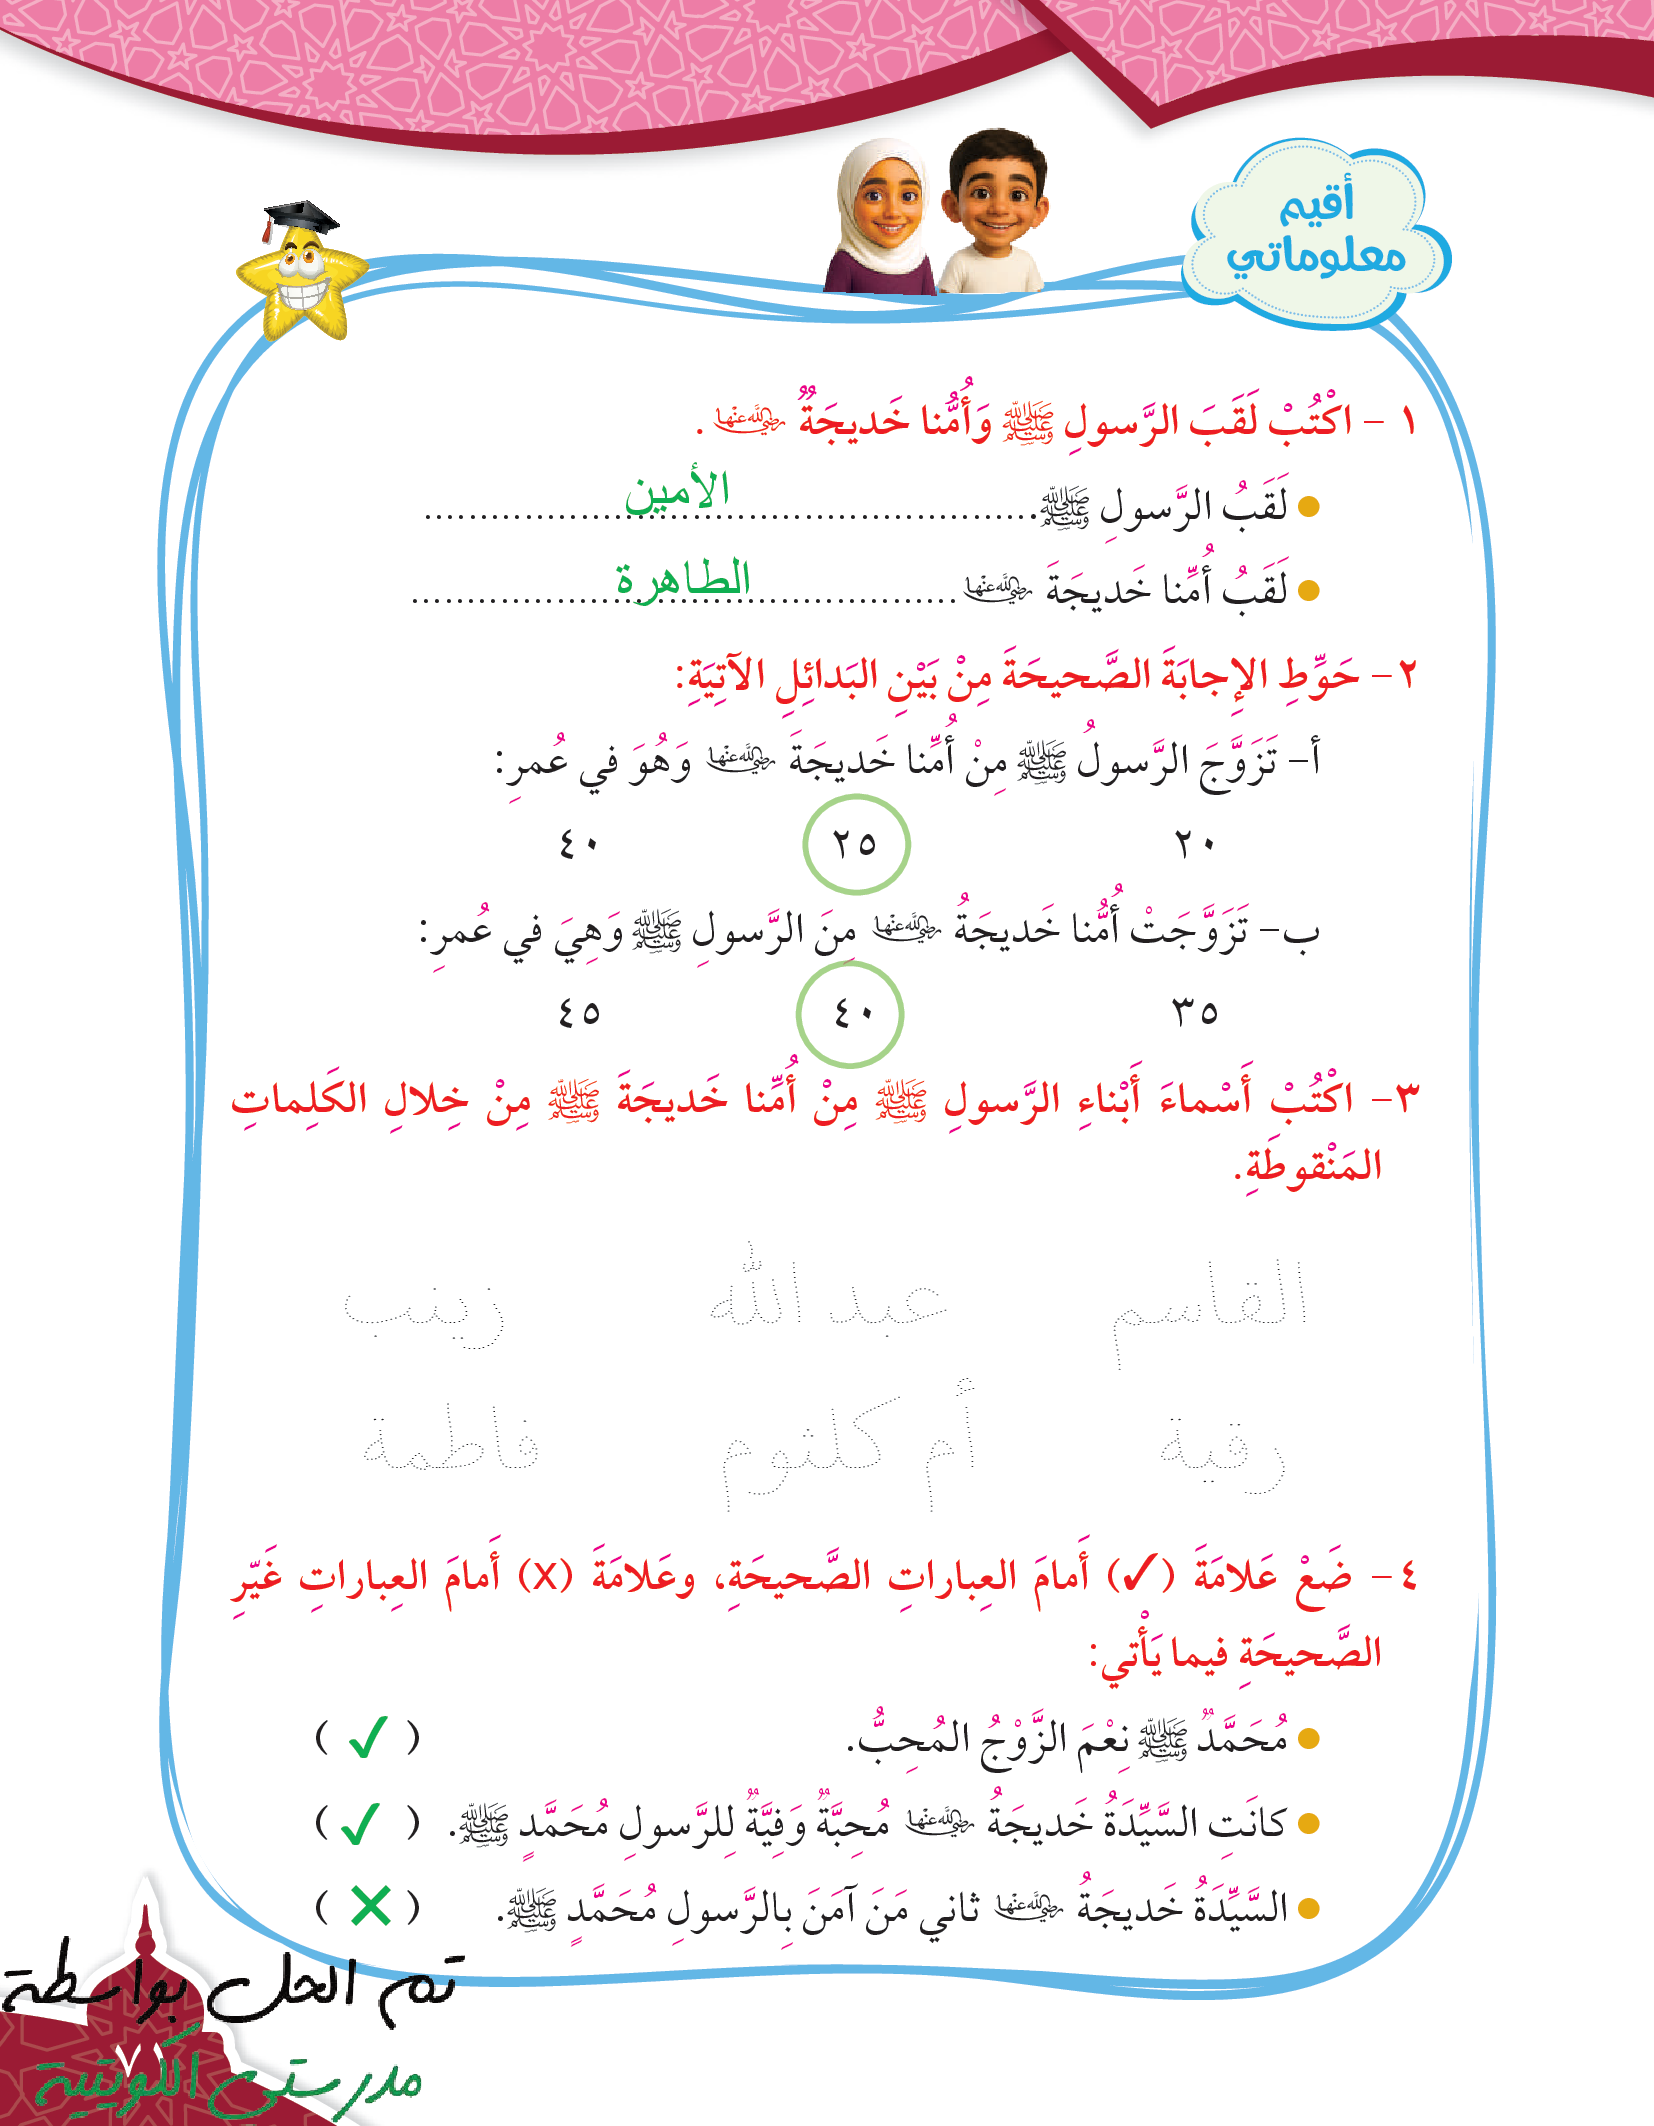 أقيم
معلوماتي
١ - اكْتُبْ لَقَبَ الرَّسولِ ﷺ وَأُمُّنا خَديجَةٌ رضي الله عنها .
لَقَبُ الرَّسولِ ﷺ. الأمين
لَقَبُ أُمِّنا خَديجَةَ رضي الله عنها الطاهرة
٢ - حَوِّطِ الإِجابَةَ الصَّحيحَةَ مِنْ بَيْنِ البَدائِلِ الآتِيَةِ:
أ- تَزَوَّجَ الرَّسولُ ﷺ مِنْ أُمِّنا خَديجَةَ رضي الله عنها وَهُوَ في عُمرِ:
٢٠ ٢٥ ٤٠
ب- تَزَوَّجَتْ أُمُّنا خَديجَةُ رضي الله عنها مِنَ الرَّسولِ ﷺ وَهِيَ في عُمرِ:
٣٥ ٤٠ ٤٥
٣- اكْتُبْ أَسْماءَ أَبْناءِ الرَّسولِ ﷺ مِنْ أُمِّنا خَديجَةَ ﷺ مِنْ خِلالِ الكَلِماتِ
المَنْقوطَةِ.
القاسم عبد الله زينب
رقية أم كلثوم فاطمة
٤ - ضَعْ عَلامَةَ (✓) أَمامَ العِباراتِ الصَّحيحَةِ، وعَلامَةَ (X) أَمامَ العِباراتِ غَيّرِ
الصَّحيحَةِ فيما يَأْتي:
مُحَمَّدٌ ﷺ نِعْمَ الزَّوْجُ المُحِبُّ. ( ✓ )
كانَتِ السَّيِّدَةُ خَديجَةُ رضي الله عنها مُحِبَّةٌ وَفِيَّةٌ لِلرَّسولِ مُحَمَّدٍ ﷺ. ( ✓ )
السَّيِّدَةُ خَديجَةُ رضي الله عنها ثاني مَنَ آمَنَ بِالرَّسولِ مُحَمَّدٍ ﷺ. ( ✕ )
تم الحل بواسطة
مدرستي الكويتية